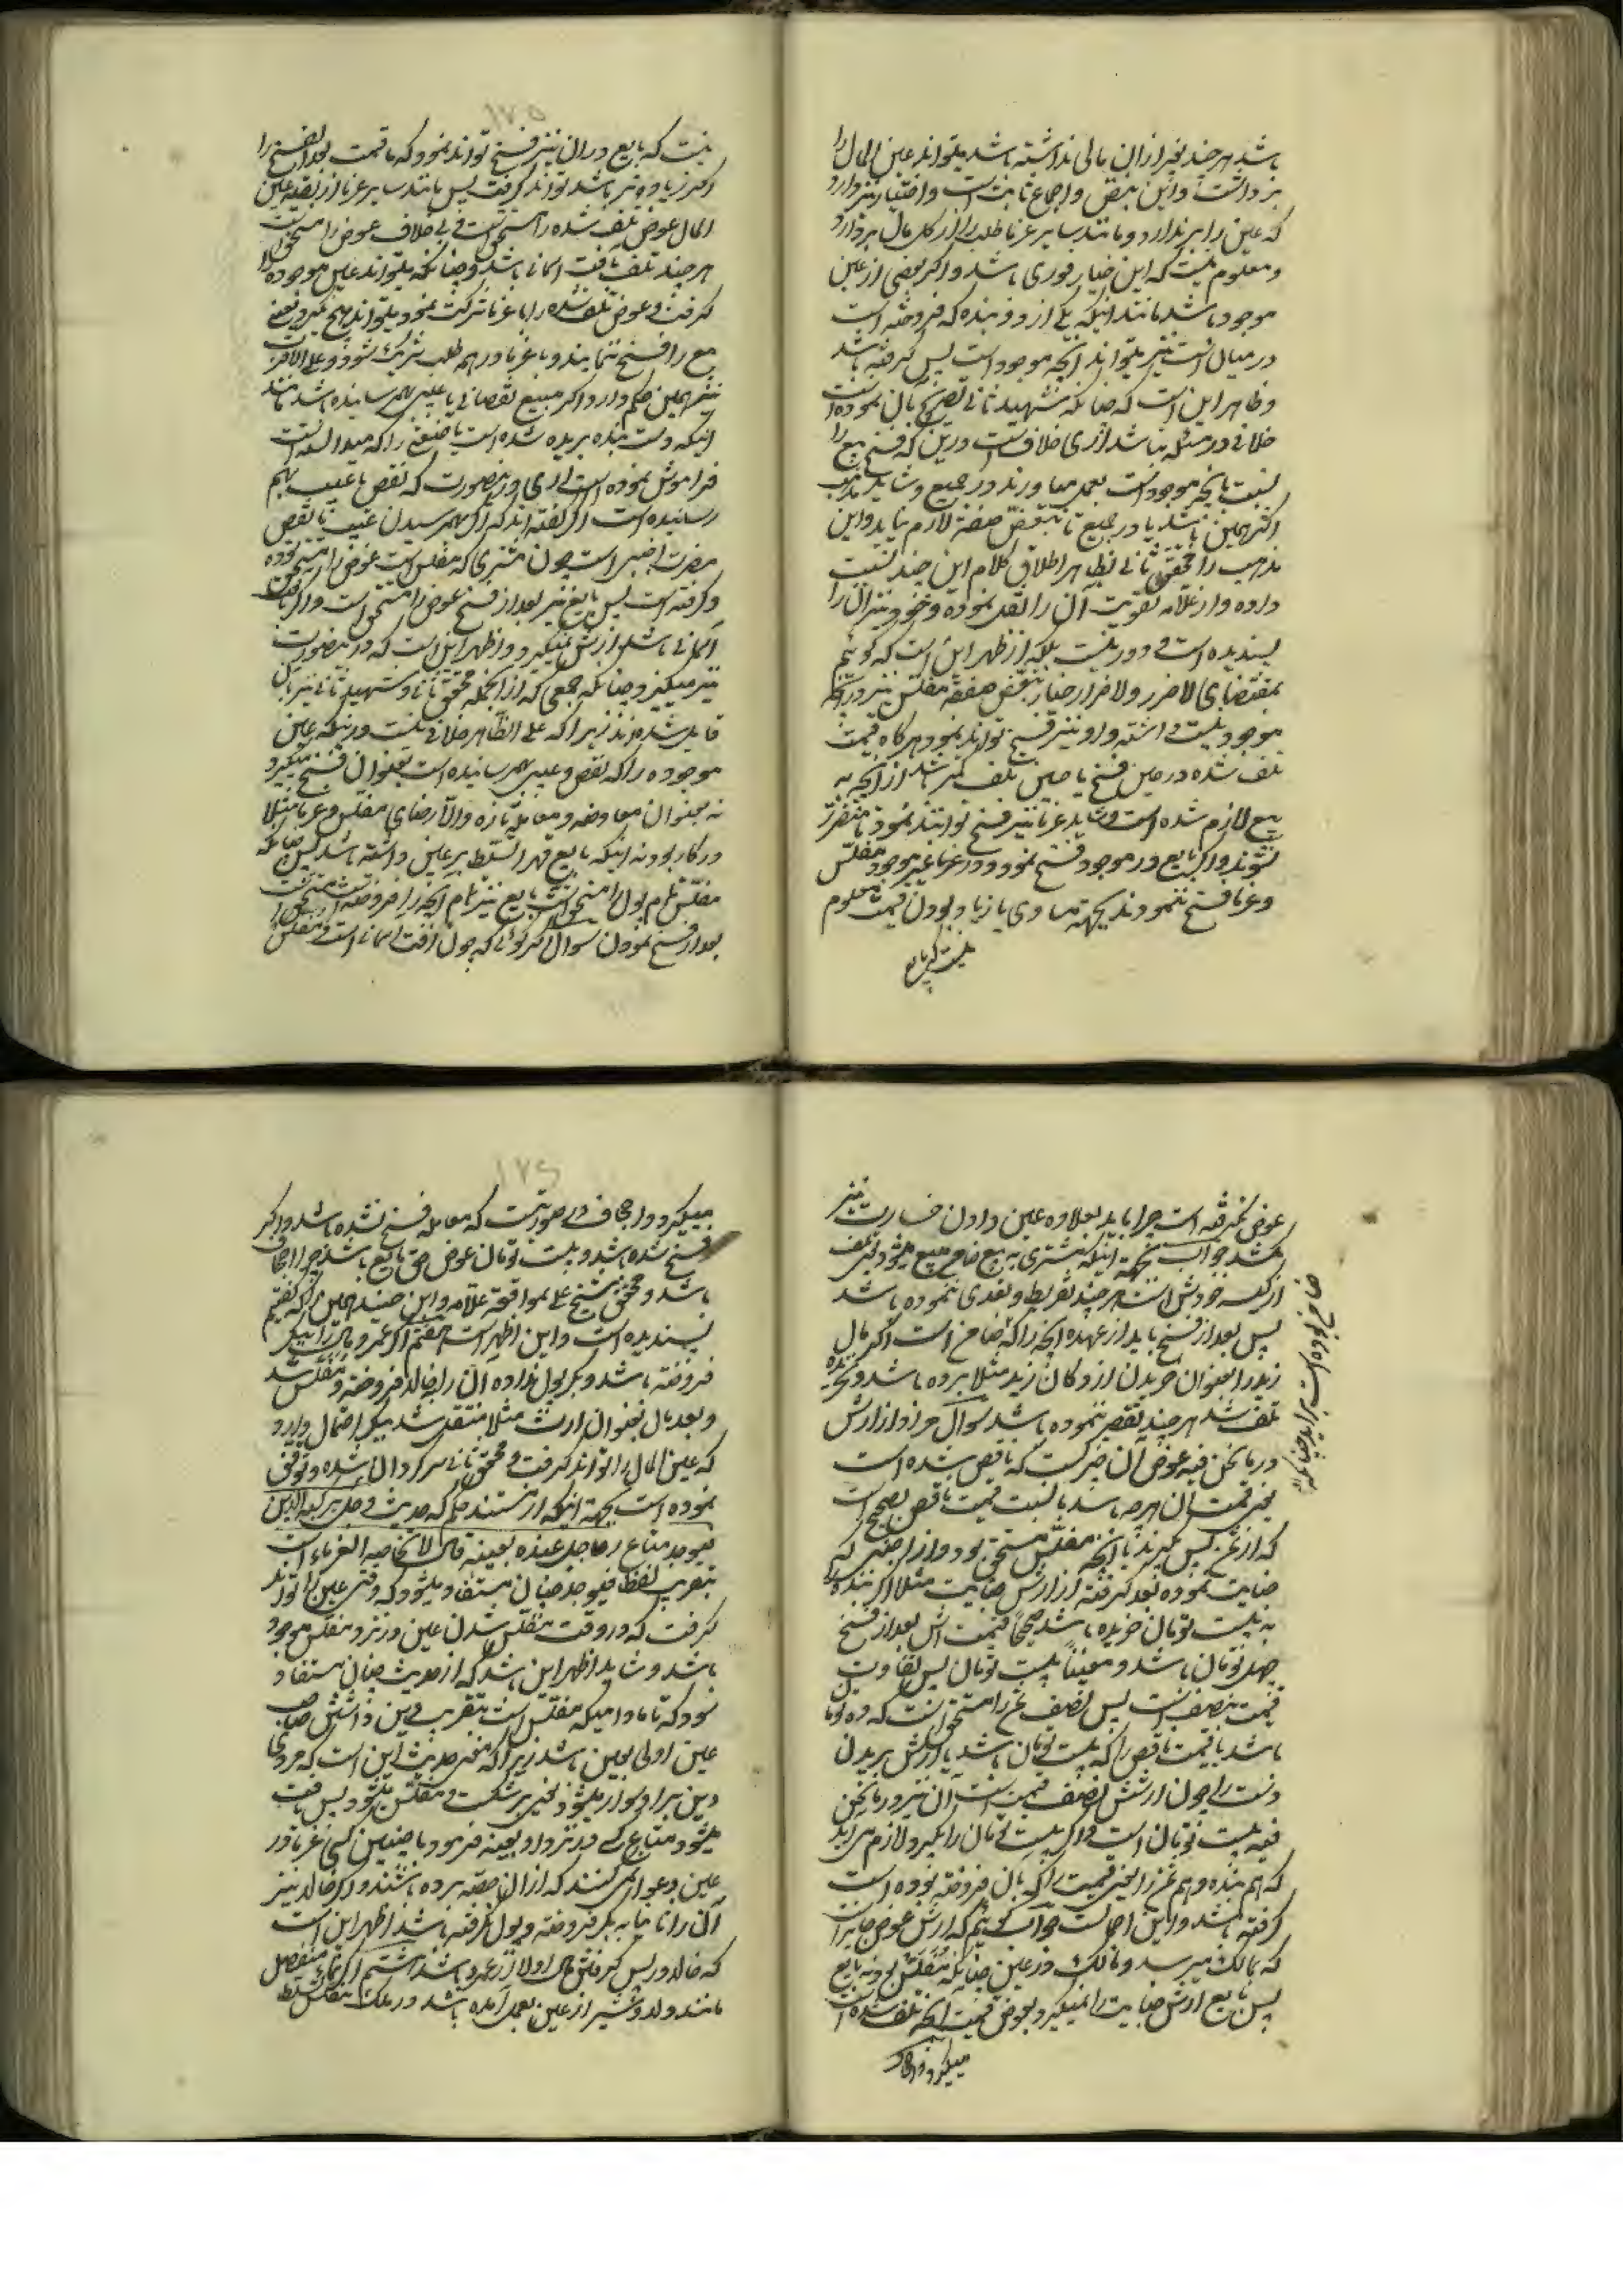 باشد هر چند بغیر از ان مالی نداشته باشد میتواند عین المال را
برداشت و این بنص و اجماع ثابت است و اختیار نیز دارد
که عین را بر ندارد و مانند سایر غرما طلب را از کل مال بردارد
و معلوم نیست که این خیار فوری باشد و اکر بعضی از عین
موجود باشد مانند اینکه یکی از دو بنده که فروخته است
در میان است نیز میتواند انچه موجود است پس کرفته باشد
و ظاهر این است که چنانکه شهید ثانی تصریح بان نموده است
خلافی در مسئله نباشد اری خلاف است در این که فسخ بیع را
نسبت بانچه موجود است بعمل میاورند در جمیع و شاید مذهب
اکثر همین باشد یا در جمیع تا تبعض صفقه لازم نیاید و این
مذهب را محقق ثانی بظاهر اطلاق کلام این جنید نسبت
داده و از علامه تقویت ان را نقل نموده و خود نیز ان را
پسندیده است و دور نیست بلکه اظهر این است که کوئیم
بمقتضای لا ضرر و لا ضرار خیار تبعض صفقه مفلس نیز در انچه
موجود نیست داشته و او نیز فسخ تواند نمود هر کاه قیمت
تلف شده در حین فسخ یا حین تلف کمتر باشد از انچه به
بیع لازم شده است و شاید غرما نیز فسخ توانند نمود تا متضرر
نشوند و اکر بایع در موجود فسخ نمود و در غیر موجود مفلس
و غرما فسخ ننمودند بجهة مساوی یا زیاد بودن قیمت معلوم
نیست که بایع
۱۷۵
نیست که بایع در ان نیز فسخ تواند نمود که تا قیمت بعد الفسخ را
اکر زیاده تر باشد تواند کرفت پس مانند سایر غرما از بقیه عین
المال عوض تلف شده را مستحق است و بی خلاف عوض را مستحق است
هر چند تلف بآفت اسمانی باشد و چنانکه میتواند عین موجوده را
کرفت و عوض تلف شده را با غرما شرکت نمود میتواند هیچ نکیرد یعنی
بیع را فسخ ننماید و با غرما در همه طلب شریک شود و علی الاقرب
نیز همین حکم دارد اکر مبیع نقصانی یا عیبی بهم رسانیده باشد مانند
اینکه دست بنده بریده شده است یا صنعتی را که میدانسته است
فراموش نموده است اری در اینصورت که نقص یا عیب بهم
رسانیده است اکثر کفته اند که اکر بهم رسیدن عیب یا نقص
مضرت اجنبی است چون مشتری که مفلس است عوض را مستحق بوده
و کرفته است پس بایع نیز بعد از فسخ عوض را مستحق است و اکر بآفت
اسمانی باشد ارش نمیکیرد و اظهر این است که در اینصورت
نیز میکیرد چنانکه جمعی که از انجمله محقق ثانی و شهید ثانی نیز باین
قایل شده اند زیرا که علی الظاهر خلافی نیست در اینکه عین
موجوده را که نقص و عیبی بهم رسانیده است بعنوان فسخ میکیرد
نه بعنوان معاوضه و معامله تازه و الا رضای مفلس و غرما مثلا
در کار بود نه اینکه بایع قهرا تسلط بر عین داشته باشد پس چنانکه
مفلس تمام پول را مستحق است بایع نیز تمام انچه را فروخته است مستحق است
بعد از فسخ نمودن سوال اکر کوئی که چون آفت اسمانی است و مفلس
عوض نکرفته است چرا باید بعلاوه عین دادن خسارت نیز
بکشد جواب بجهة اینکه مشتری به بیع ضامن مبیع میشود یعنی تلف
از کیسه خودش است هر چند تفریط و تعدی ننموده باشد
پس بعد از فسخ باید از عهده انچه را که ضامن است اکر مال
زید را بعنوان خریدن از دکان زید مثلا برده باشد و نخریده
تلف شد هر چند تقصیر ننموده باشد سوال مراد از ارش
در مانحن فیه عوض آن چیز است که ناقص شده است
یعنی قیمت ان هر چه باشد یا نسبت قیمت ناقص بصحیح است
که از ثمن پس میکیرند یا انچه مفلس مستحق بود و از اجنبی که
جنایت نموده بعد کرفته از ارش جنایت مثلا اکر بنده را
به بیست تومان خریده باشد صحیحا قیمت اش بعد از فسخ
چهل تومان باشد و معیبا بیست تومان پس تفاوت
قیمت بنصف است پس نصف ثمن را مستحق است که ده تومان
باشد یا قیمت ناقص را که بیست تومان باشد یا ارش بریدن
دست را چون ارشش نصف قیمت است آن نیز در مانحن
فیه بیست تومان است و اکر بیست تومان را بکیرد لازم می اید
که هم بنده و هم ثمن را یعنی قیمت را که بان فروخته بوده است
کرفته باشد و این اجحاف است جواب کوئیم که ارش عوض جنایت است
که بمالک میرسد و مالک در عین جنایت مفلس بود نه بایع
پس بایع ارش جنایت را نمیکیرد و بعوض قیمت انچه تلف شده است
میکیرد و اجحاف
ضامن بوده است براید چنانکه
۱۷۶
میکیرد و اجحاف در صورتیست که معامله فسخ نشده باشد و اکر
فسخ شده باشد و بیست تومان عوض حق بایع باشد چرا اجحاف
باشد و محقق شیخ علی بموافقة علامه و ابن جنید همین را که کفتیم
پسندیده است و این اظهر است هفتم اکر عمرو مال را ببکر
فروخته باشد و بکر پول نداده آن را بخالد فروخته و مفلس شد
و بعد مال بعنوان ارث مثلا منتقل شد ببکر احتمال دارد
که عین المال را تواند کرفت و محقق ثانی سرکردان شده و توقف
نموده است بجهة اینکه از مستند حکم که حدیث فی رجل یرکبه الدین
فیوجد متاع رجل عنده بعینه قال لا یحاصه الغرماء است
بتقریب لفظ فیوجد چنان مستفاد میشود که وقتی عین را تواند
کرفت که در وقت مفلس شدن عین در نزد مفلس موجود
باشد و شاید اظهر این باشد که از حدیث چنان مستفاد
شود که تا مادامیکه مفلس است بتقریب دین داشتن صاحب
عین اولی بعین باشد زیرا که معنی حدیث این است که مردی
دین بر او سوار میشود یعنی پرشکست و مفلس میشود پس یافت
میشود متاع کسی در نزد او بعینه فرمود با چنین کسی غرما در
عین دعوا نمی کنند که از ان حصه برده باشند و اکر خالد نیز
آن را تا بیابه بکر فروخته و پول نکرفته باشد اظهر این است
که خالد در پس کرفتن مال اولی از عمرو باشد هشتم اکر نماء منفصل
مانند ولد و شیر از عین بعمل آمده باشد در ملک مفلس تسلط